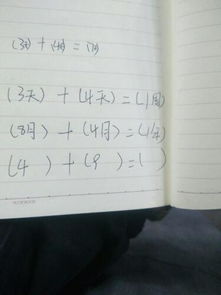 (3天) + (4天) = (7天)
(3天) + (4天) = (1周)
(8月) + (4月) = (1年)
(4 ) + (9 ) = ( )